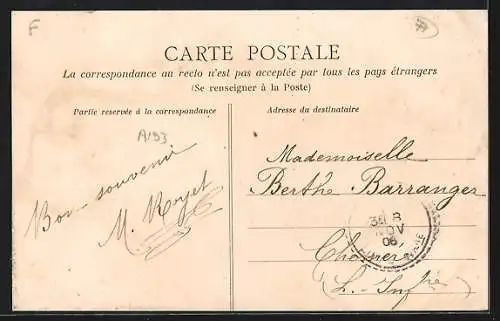 F
CARTE POSTALE
La correspondance au recto n'est pas acceptée par tous les pays étrangers
(Se renseigner à la Poste)
Partie reservée à la correspondance
A193
Bon souvenir
M. Royet
Adresse du destinataire
Mademoiselle
Berthe Barranger
8
NOV
06
(L. Infre)